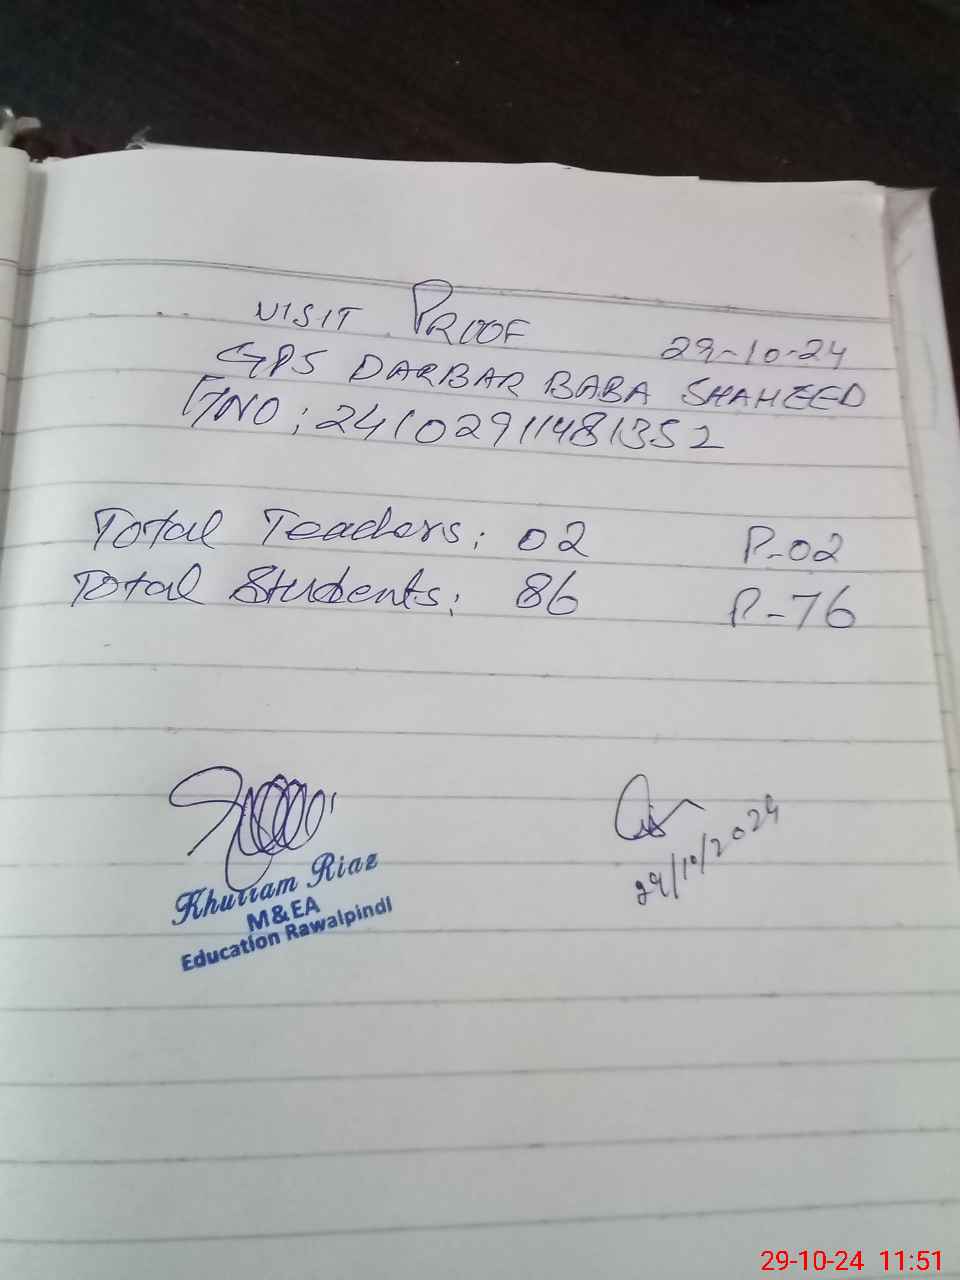 VISIT PROOF 29-10-24
GPS DARBAR BABA SHAHEED
F/NO: 24102911481352
Total Teachers: 02 P-02
Total Students: 86 P-76
29/10/2024
Khurram Riaz
M&EA
Education Rawalpindi
29-10-24 11:51